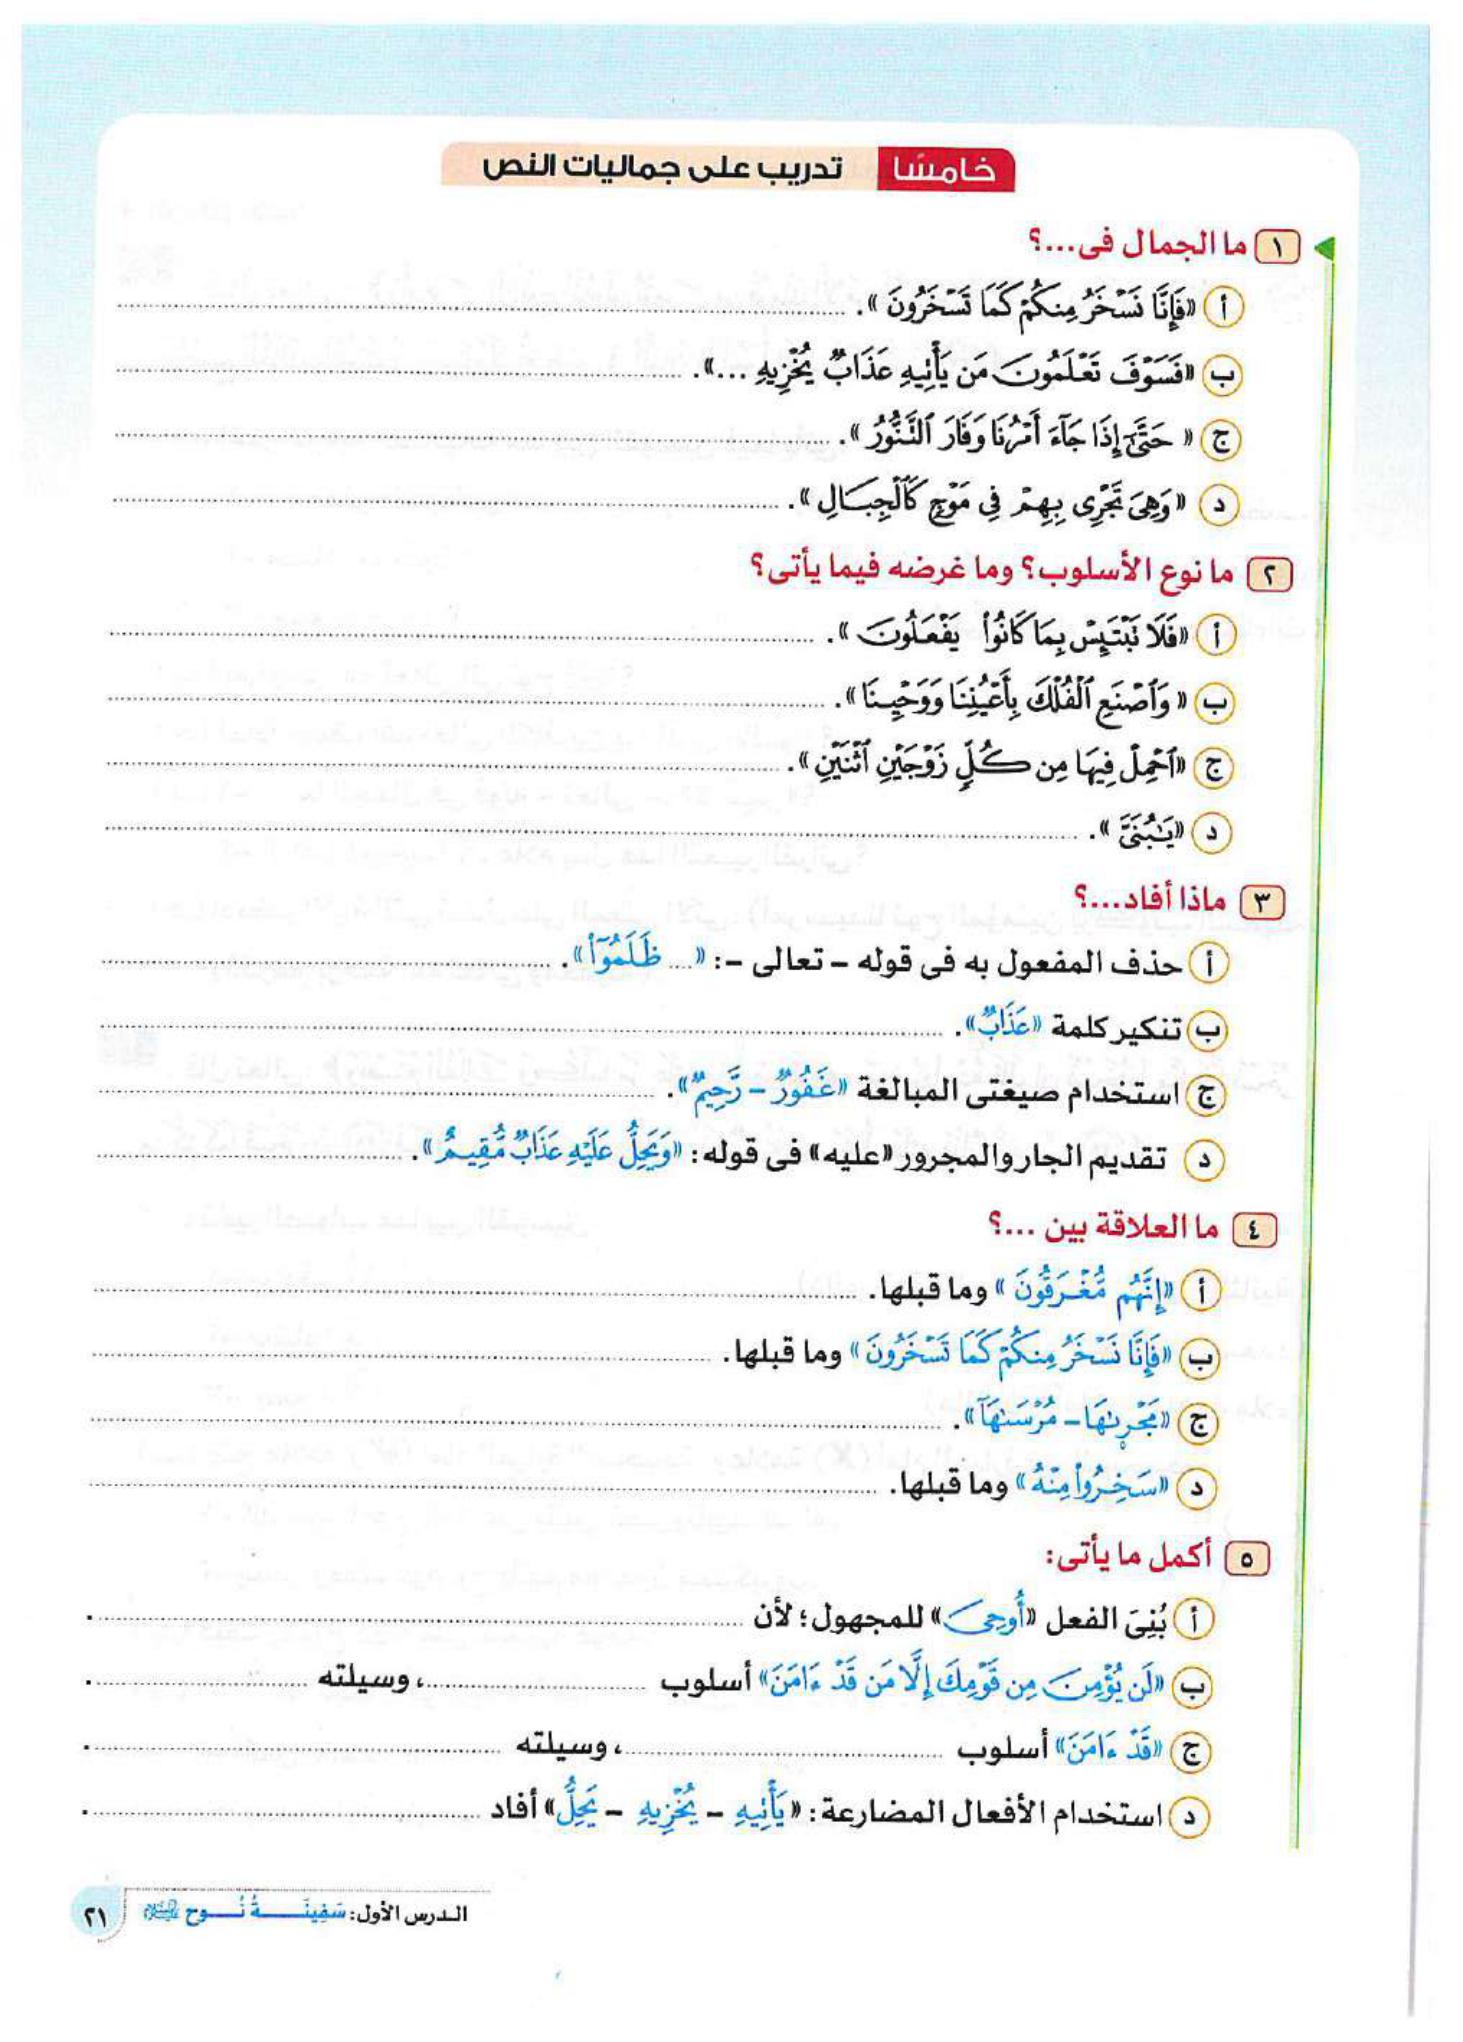 خامسًا تدريب على جماليات النص
١ ما الجمال فى...؟
أ «فَإِنَّا نَسْخَرُ مِنكُمْ كَمَا تَسْخَرُونَ». ........
ب «فَسَوْفَ تَعْلَمُونَ مَن يَأْتِيهِ عَذَابٌ يُخْزِيهِ ...». ........
ج «حَتَّىٰٓ إِذَا جَآءَ أَمْرُنَا وَفَارَ ٱلتَّنُّورُ». ........
د «وَهِىَ تَجْرِى بِهِمْ فِى مَوْجٍ كَٱلْجِبَالِ». ........
٢ ما نوع الأسلوب؟ وما غرضه فيما يأتى؟
أ «فَلَا تَبْتَئِسْ بِمَا كَانُوا۟ يَفْعَلُونَ». ........
ب «وَٱصْنَعِ ٱلْفُلْكَ بِأَعْيُنِنَا وَوَحْيِنَا». ........
ج «ٱحْمِلْ فِيهَا مِن كُلٍّ زَوْجَيْنِ ٱثْنَيْنِ». ........
د «يَـٰبُنَىَّ». ........
٣ ماذا أفاد...؟
أ حذف المفعول به فى قوله - تعالى -: «... ظَلَمُوٓا۟». ........
ب تنكير كلمة «عَذَابٌ». ........
ج استخدام صيغتى المبالغة «غَفُورٌ - رَّحِيمٌ». ........
د تقديم الجار والمجرور «عليه» فى قوله: «وَيَحِلُّ عَلَيْهِ عَذَابٌ مُّقِيمٌ». ........
٤ ما العلاقة بين ...؟
أ «إِنَّهُم مُّغْرَقُونَ» وما قبلها. ........
ب «فَإِنَّا نَسْخَرُ مِنكُمْ كَمَا تَسْخَرُونَ» وما قبلها. ........
ج «مَجْر۪ىٰهَا - مُرْسَىٰهَآ». ........
د «سَخِرُوا۟ مِنْهُ» وما قبلها. ........
٥ أكمل ما يأتى:
أ بُنِىَ الفعل «أُوحِىَ» للمجهول؛ لأن ........ .
ب «لَن يُؤْمِنَ مِن قَوْمِكَ إِلَّا مَن قَدْ ءَامَنَ» أسلوب ........، وسيلته ........ .
ج «قَدْ ءَامَنَ» أسلوب ........، وسيلته ........ .
د استخدام الأفعال المضارعة: «يَأْتِيهِ - يُخْزِيهِ - يَحِلُّ» أفاد ........ .
الدرس الأول: سَفِينَــةُ نُــوح عليه السلام ٢١